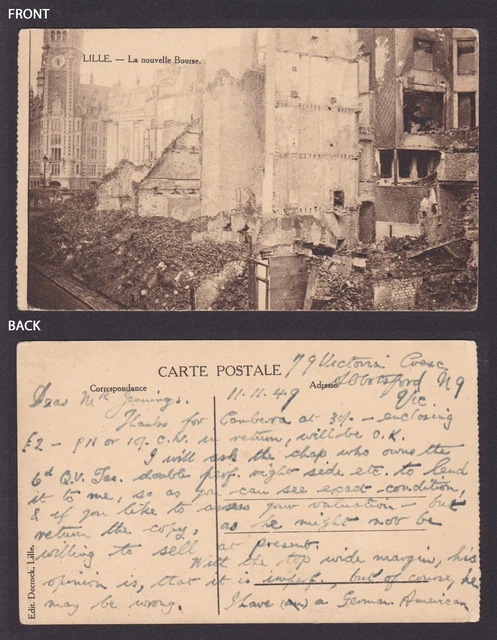 FRONT
LILLE. — La nouvelle Bourse.
BACK
CARTE POSTALE
Correspondance
Adresse
79 Victoria Cresc.
Abbotsford N9
Vic.
11.11.49
Dear Mr Jennings.
Thanks for Canberra at 30/- – enclosing
£2 – PN or 10/- C.W. in return, will be O.K.
I will ask the chap who owns the
6d Q.V. Tas. double prof. might side etc. to lend
it to me, so as you can see exact condition,
& if you like to assess your valuation – but
return the copy, as he might not be
willing to sell at present.
With the top wide margin, his
opinion is, that it is imperf., but of course, he
may be wrong. I have (an) a German American
Edit. Decrock, Lille.